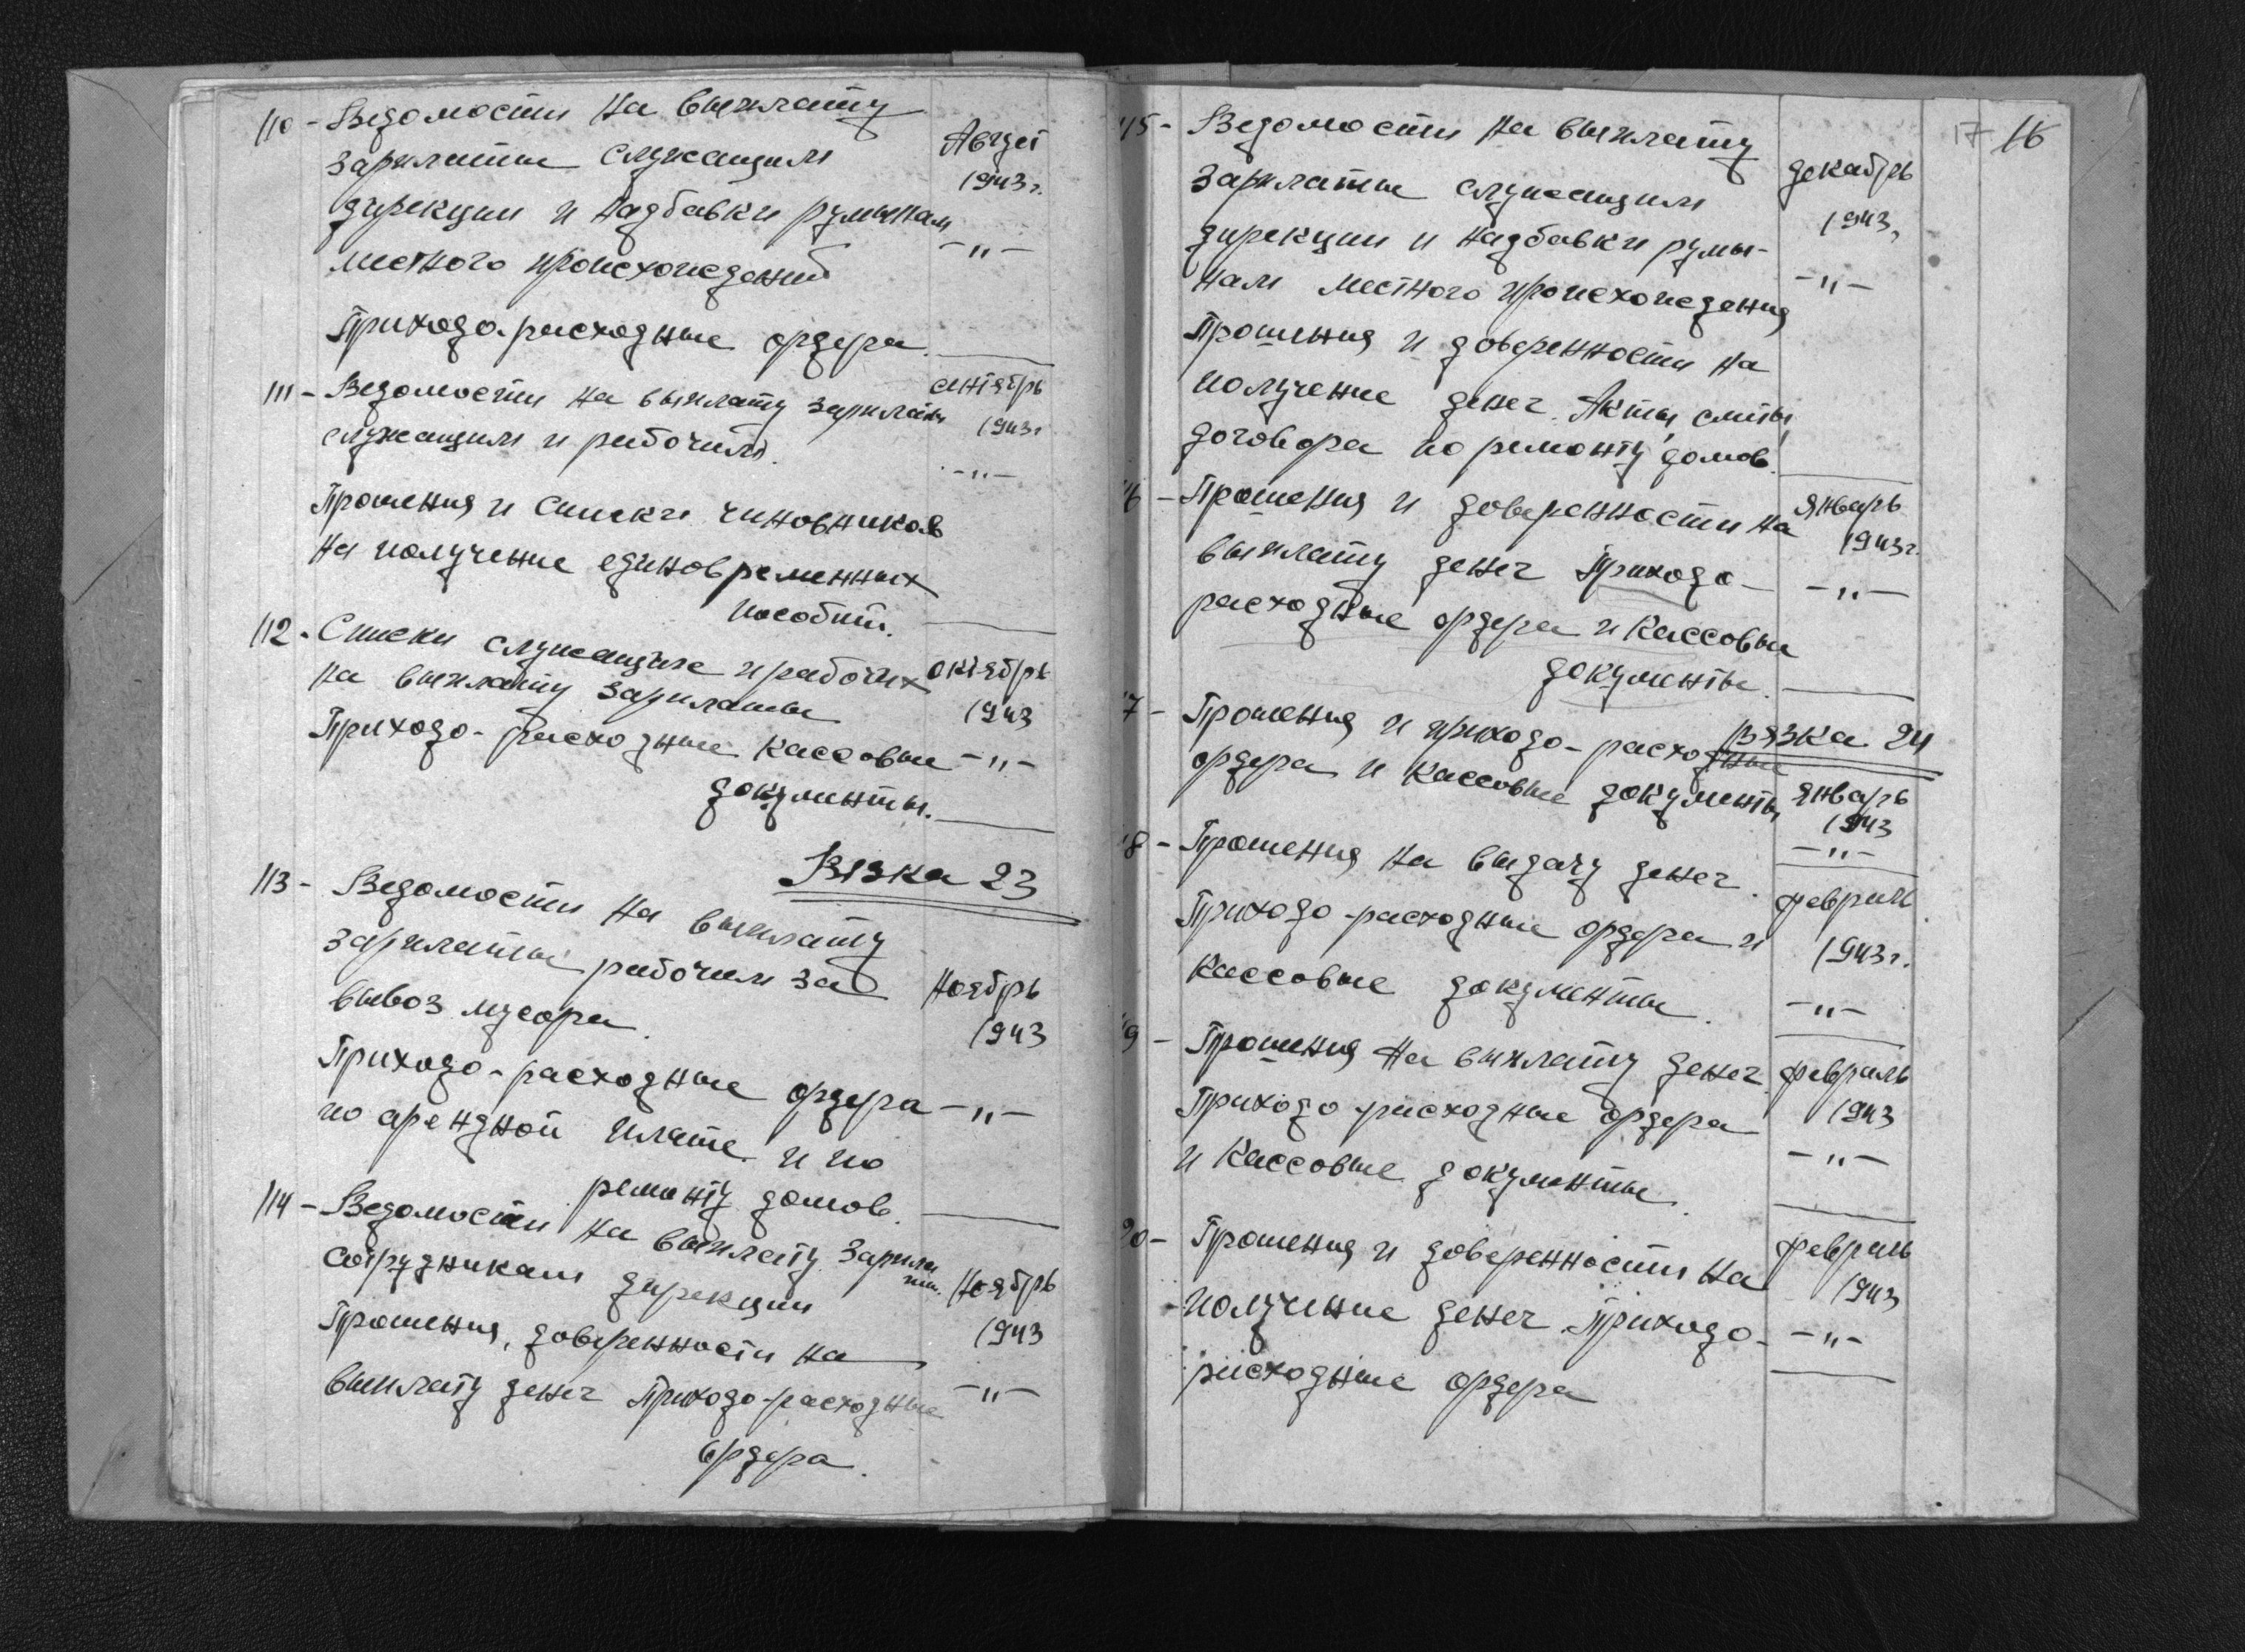 110 - Ведомости на выплату
зарплаты служащим
дирекции и надбавки румынам
местного происхождений
Август
1943 г.
-"-
Приходо-расходные ордера.
111 - Ведомости на выплату зарплаты
служащим и рабочим.
сентябрь
1943 г
-"-
Прошения и списки чиновников
на получение единовременных
пособий.
112. Списки служащих и рабочих
на выплату зарплаты
Приходо-расходные кассовые
документы.
октябрь
1943
-"-
Вязка 23
113 - Ведомости на выплату
зарплаты рабочим за
вывоз мусора.
ноябрь
1943
Приходо-расходные ордера -"-
по арендной плате и по
ремонту домов.
114 - Ведомости на выплату зарпла
ты.
сотрудникам дирекции
Прошения, доверенности на
выплату денег Приходо-расходные
ордера.
ноябрь
1943
-"-
17 16
15 - Ведомости на выплату
зарплаты служащим
дирекции и надбавки румы-
нам местного происхождения
Прошения и доверенности на
получение денег. Акты, сметы,
договора по ремонту домов.
декабрь
1943,
-"-
6 - Прошения и доверенности на
выплату денег Приходо-
расходные ордера и кассовые
документы.
январь
1943 г.
-"-
Вязка 24
7 - Прошения и приходо-расходные
ордера и кассовые документы
январь
1943
-"-
8 - Прошения на выдачу денег.
Приходо-расходные ордера и
кассовые документы.
февраль
1943 г.
-"-
9 - Прошения на выплату денег.
Приходо-расходные ордера
и кассовые документы.
февраль
1943
-"-
20 - Прошения и доверенности на
получение денег. Приходо-
расходные ордера
февраль
1943
-"-